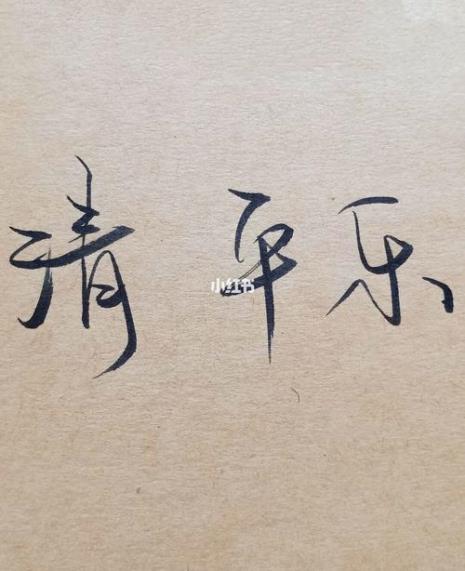 清平乐
小红书